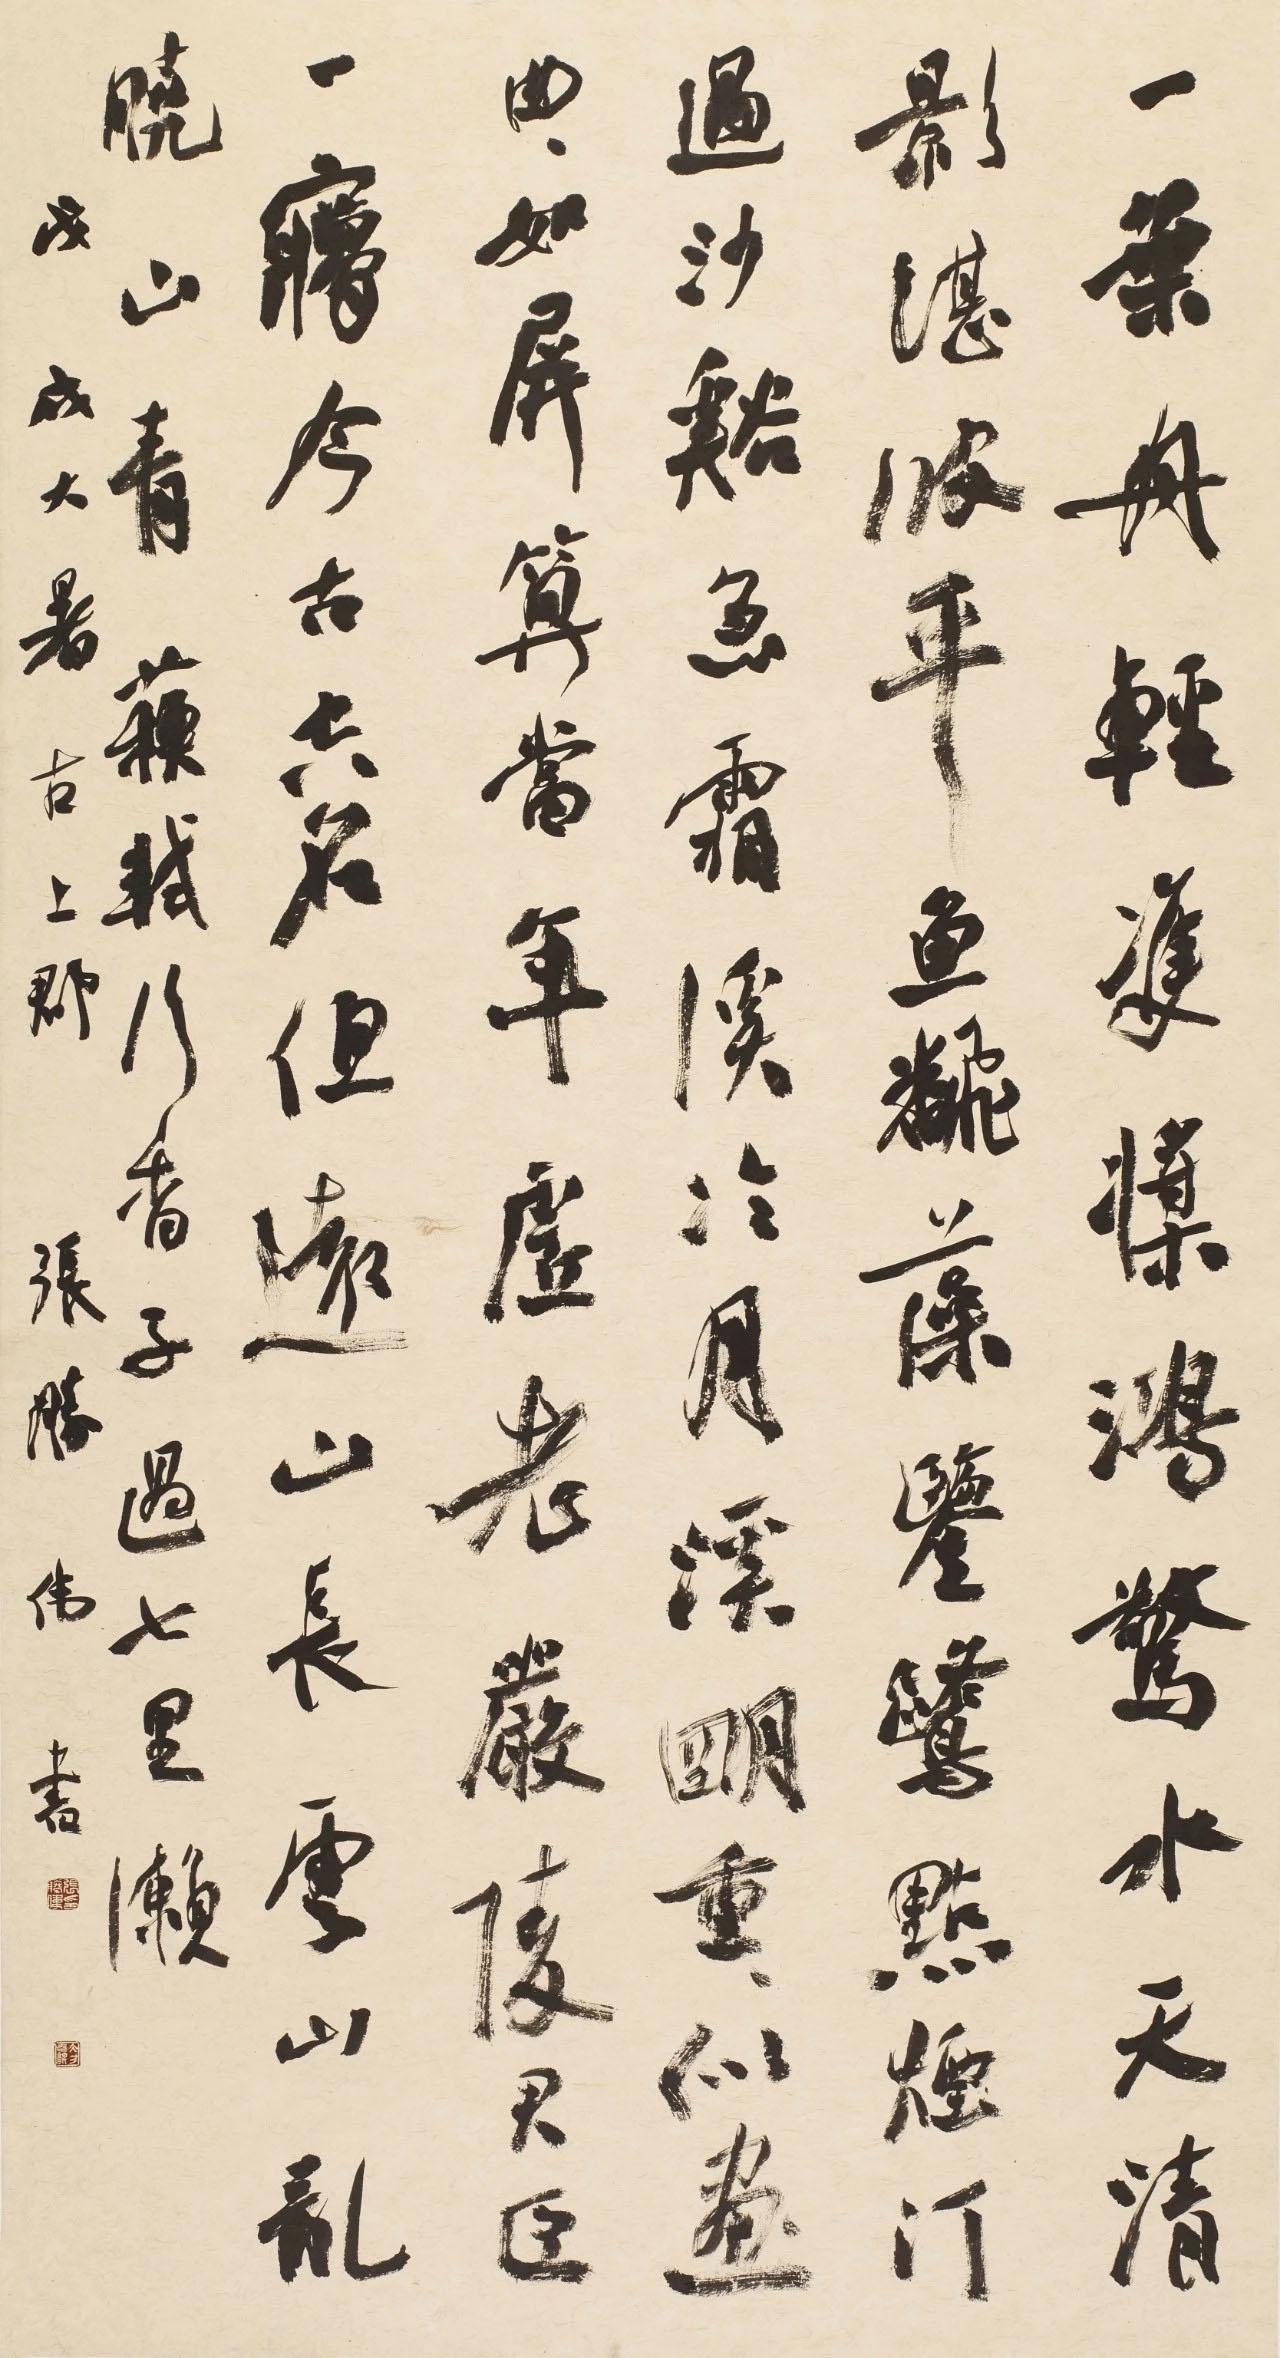 一葉舟輕雙槳鴻驚水天清
影湛波平魚翻藻鑒鷺點煙汀
過沙谿急霜溪冷月溪明重重似畫
曲曲如屏算當年虛老嚴陵君臣
一夢今古空名但遠山長雲山亂
曉山青 蘇軾行香子過七里瀨
戊戌大暑古上郡張勝伟書